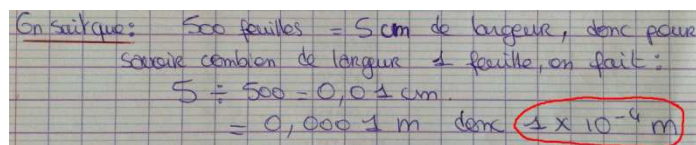 On sait que : 500 feuilles = 5 cm de largeur, donc pour
savoir combien de largeur 1 feuille, on fait :
5 ÷ 500 = 0,01 cm.
= 0,0001 m donc 1 x 10⁻⁴ m